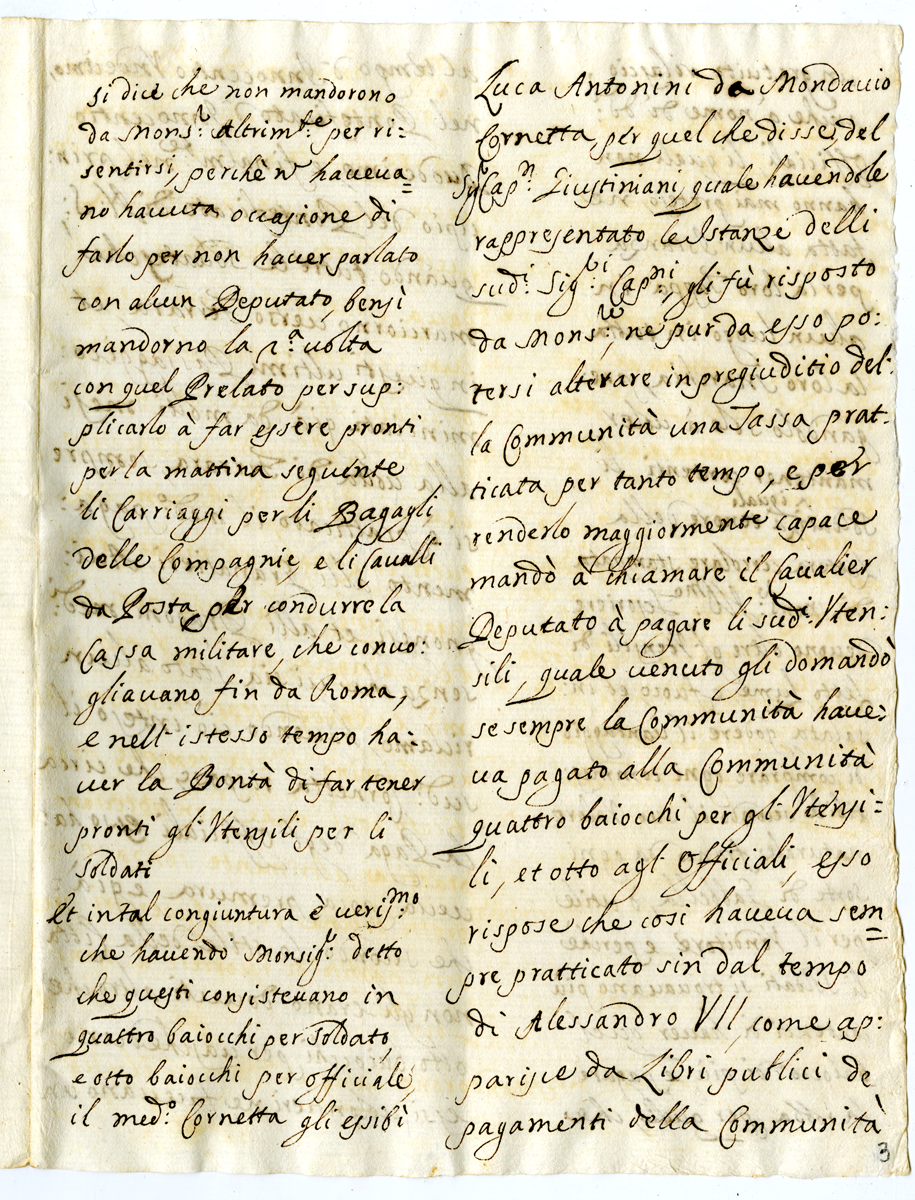 si dice che non mandorono
da Mons.r Altrim.te per ri:
sentirsi, perchè n̄ haveva=
no havuta occasione di
farlo per non haver parlato
con alcun Deputato, bensì
mandorno la 1.a volta
con quel Prelato per sup:
plicarlo à far essere pronti
per la mattina seguente
li Carriaggi per li Bagagli
delle Compagnie, e li Cavalli
da Posta per condurre la
Cassa militare, che convo:
gliavano fin da Roma,
e nell'istesso tempo ha:
ver la Bontà di far tener
pronti gl'Utensili per li
soldati
Et in tal congiuntura è veris.mo
che havendo Monsig.r detto
che questi consistevano in
quattro baiocchi per soldato,
e otto baiocchi per officiale,
il med.o Cornetta gli essibì
Luca Antonini da Mondavio
Cornetta, per quel che disse, del
Sig.r Cap.n Giustiniani, quale havendole
rappresentato le Istanze delli
sud.i Sig.ri Cap.ni, gli fù risposto
da Mons.re, ne pur da esso po:
tersi alterare in pregiuditio del:
la Communità una Tassa prat:
ticata per tanto tempo, e per
renderlo maggiormente capace
mandò à chiamare il Cavalier
Deputato à pagare li sud.i Uten:
sili, quale venuto gli domandò
se sempre la Communità have:
va pagato alla Communità
quattro baiocchi per gl'Utensi=
li, et otto agl'Officiali, esso
rispose che così haveva sem
pre pratticato sin dal tempo
di Alessandro VII, come ap:
parisce da Libri publici de
pagamenti della Communità
3